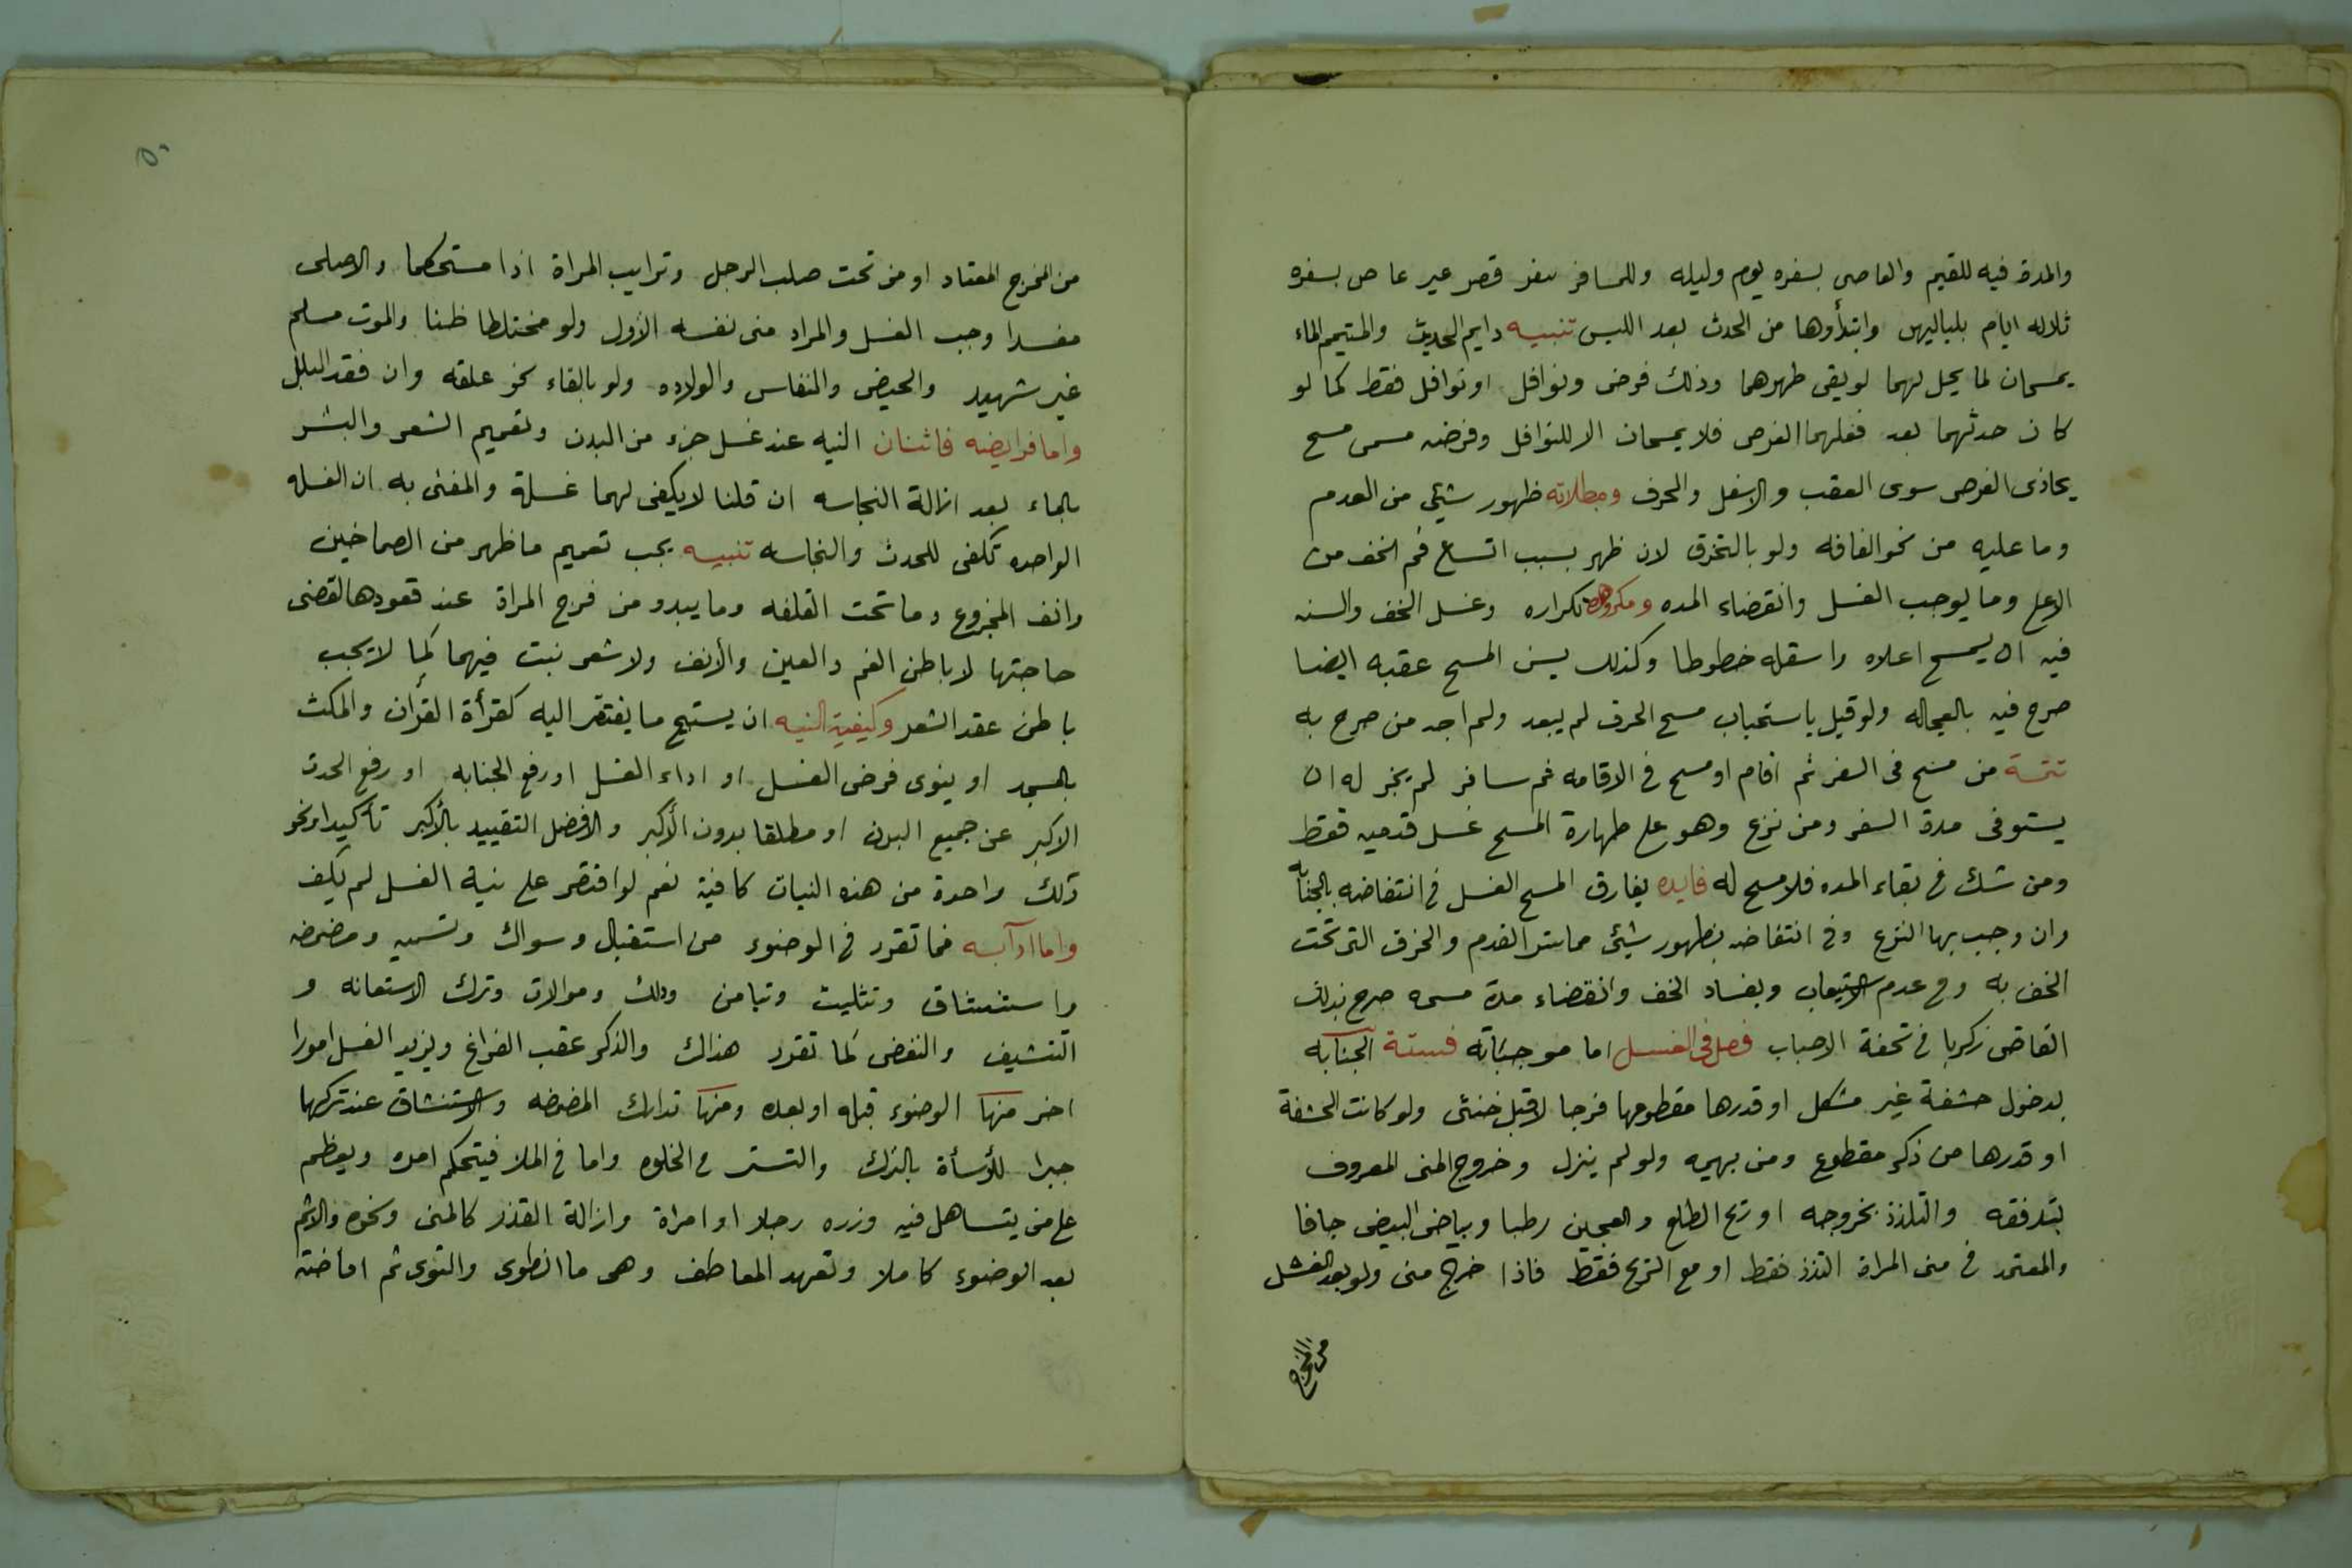 والمدة فيه للقيم والعاصى بسفره يوم وليله وللمسافر سفر قصر غير عاص بسفره
ثلاثه ايام بلياليهن وابتدأوها من الحدث بعد اللبس تنبيه دايم الحديث والمتيمم الماء
يمسحان لما يحل لهما لو بقى طهرهما وذلك فرض ونوافل او نوافل فقط كما لو
كان حدثهما بعد فعلهما الفرض فلا يمسحان الا للنوافل وفرضه مسمى مسح
يحاذى الفرض سوى العقب والاسفل والحرف ومبطلاته ظهور شيئ من القدم
وما عليه من نحو الفافه ولو بالتخرق لان ظهر بسبب اتساع فم الخف من
الاعلا وما يوجب الغسل وانقضاء المده ومكروهه تكراره وغسل الخف والسنه
فيه ان يمسح اعلاه واسفله خطوطا وكذلك يسن المسح عقبه ايضا
صرح فيه بالعجاله ولو قيل باستحباب مسح الحرف لم يبعد ولم اجد من صرح به
تتمة من مسح فى السفر ثم اقام او مسح فى الاقامه ثم سافر لم يجز له ان
يستوفى مدة السفر ومن نزع وهو على طهارة المسح غسل قدميه فقط
ومن شك فى بقاء المده فلا مسح له فايده يفارق المسح الغسل فى انتفاضه بالجنابه
وان وجب بها النزع وفى انتفاضه بظهور شيئ مما ستر القدم والخرق التى تحت
الخف به وفى عدم الاستيعاب وبفساد الخف وانقضاء مدة مسحه صرح بذلك
القاضى زكريا فى تحفة الاحباب فصل فى الغسل اما موجباته فستة الجنابه
بدخول حشفة غير مشكل او قدرها مقطوعها فرجا لا قبل خنثى ولو كانت الحشفة
او قدرها من ذكر مقطوع ومن بهيمه ولو لم ينزل وخروج المنى المعروف
بتدفقه والتلذذ بخروجه او ريح الطلع والعجين رطبا وبياض البيض جافا
والمعتمد فى منى المراة التذذ فقط او مع الريح فقط فاذا خرج منى ولو بعد الغسل
من المخرج
٥٠
من المخرج المعتاد او من تحت صلب الرجل وترايب المراة اذا مستحكما والاصلى
مفسدا وجب الغسل والمراد منى نفسه الأول ولو مختلطا ظنا والموت مسلم
غير شهيد والحيض والنفاس والولاده ولو بالقاء نحو علقه وان فقد البلل
واما فرايضه فاثنان النيه عند غسل جزء من البدن وتعميم الشعر والبشر
بالماء بعد ازالة النجاسه ان قلنا لا يكفى لهما غسلة والمفتى به ان الغسله
الواحده تكفى للحدث والنجاسه تنبيه يجب تعميم ما ظهر من الصماخين
وانف المجزوع وما تحت القلفه وما يبدو من فرج المراة عند قعودها لقضى
حاجتها لا باطن الفم والعين والأنف ولا شعر نبت فيهما كما لا يجب
باطن عقد الشعر وكيفية النيه ان يستبيح ما يفتقر اليه كقرأة القرأن والمكث
بالمسجد او ينوى فرض الغسل او اداء الغسل او رفع الجنابه او رفع الحدث
الاكبر عن جميع البدن او مطلقا بدون الأكبر والافضل التقييد بالأكبر تأكيدا ونحو
ذلك واحدة من هذه النيات كافية نعم لو اقتصر على نية الغسل لم يكف
واما ادآبه فما تقرر فى الوضوء من استقبال وسواك وتسميه ومضمضه
واستنشاق وتثليث وتيامن ودلك وموالات وترك الاستعانه و
التنشيف والنفض كما تقرر هناك والذكر عقب الفراغ ويزيد الغسل امورا
اخر منها الوضوء قبله او بعده ومنها تدارك المضمضه والاستنشاق عند تركها
جبرا للأسأة بالترك والتستر فى الخلوه واما فى الملا فيتحكم امره ويعظم
على من يتساهل فيه وزره رجلا او امراة وازالة القذر كالمنى ونحوه والاثم
بعد الوضوء كاملا وتعهد المعاطف وهى ما انطوى والتوى ثم افاضة